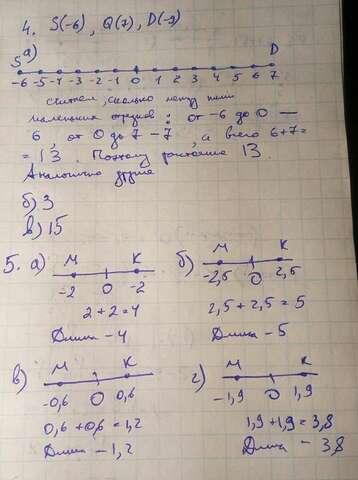 4. S(-6), Q(7), D(-9)
а)
S D
-6 -5 -4 -3 -2 -1 0 1 2 3 4 5 6 7
считаем, сколько между ними
маленьких отрезков: от -6 до 0 —
6, от 0 до 7 - 7, а всего 6+7=
=13. Поэтому растояние 13.
Аналогично другие
б) 3
в) 15
5. а) M K
-2 0 -2
2+2=4
Длина - 4
б) M K
-2,5 0 2,5
2,5+2,5=5
Длина - 5
в) M K
-0,6 0 0,6
0,6+0,6=1,2
Длина - 1,2
г) M K
-1,9 0 1,9
1,9+1,9=3,8
Длина - 3,8